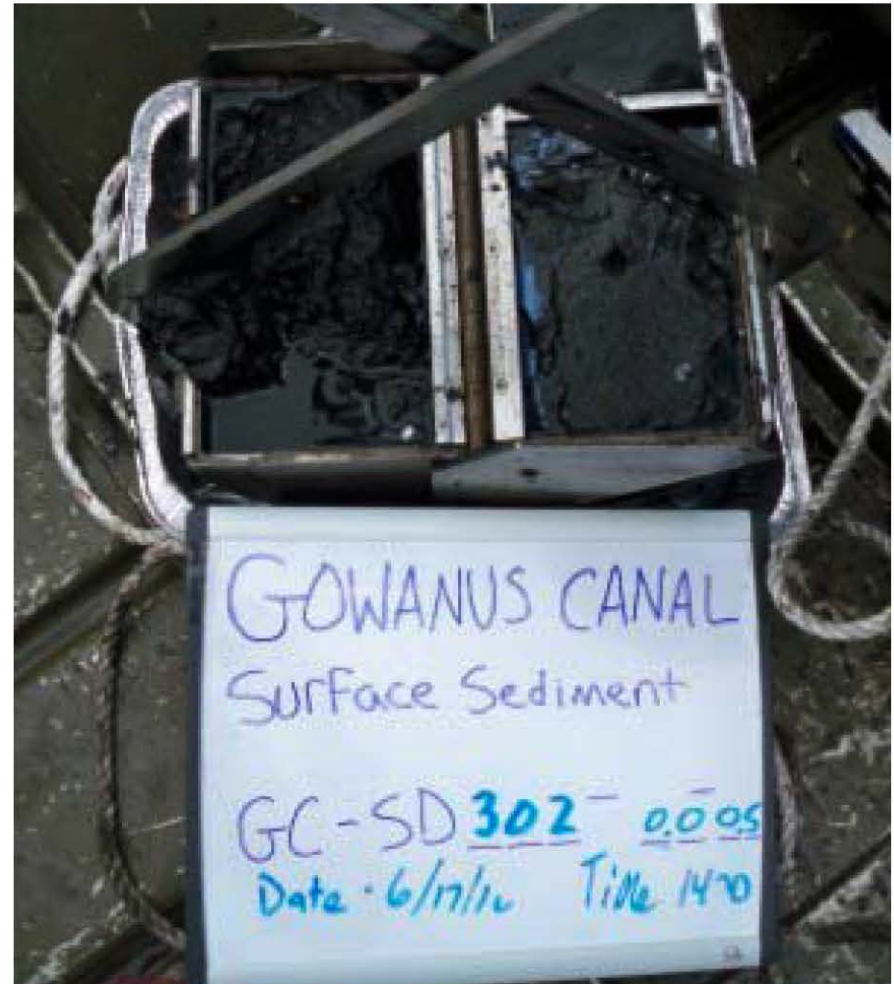 GOWANUS CANAL
Surface Sediment
GC-SD 302- 0.0-0.5
Date · 6/17/16 Time